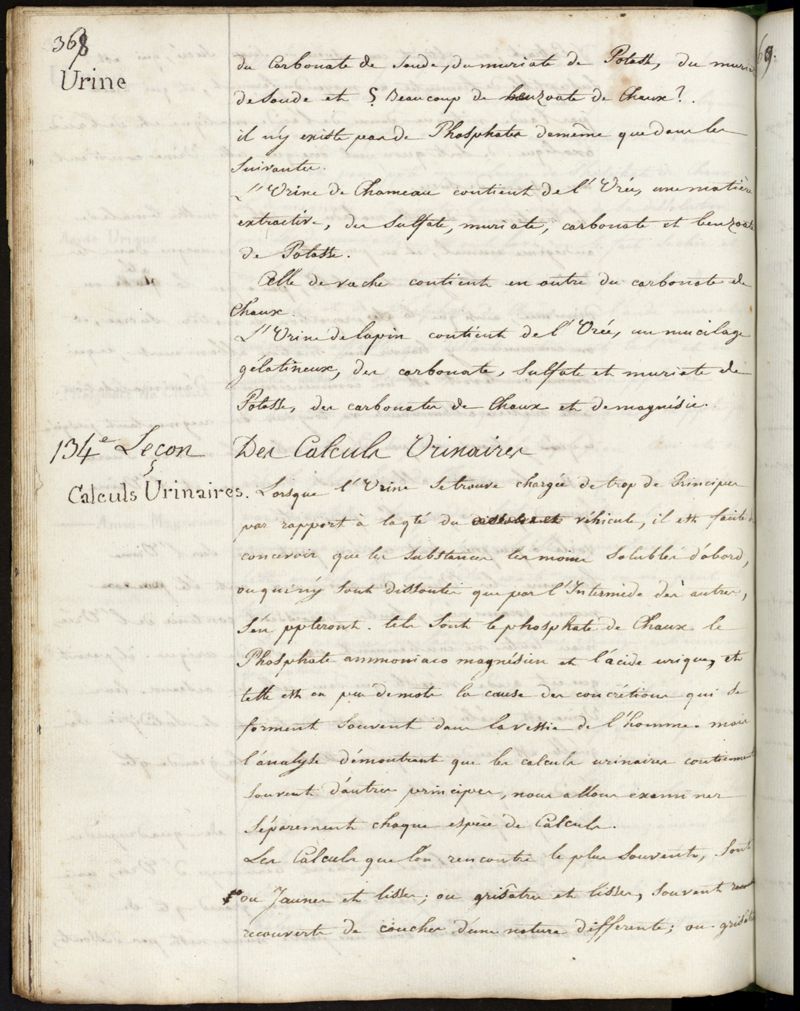 368
Urine
du Carbonate de Soude, du muriate de Potasse, du muri
de Soude et Beaucoup de benzoate de Chaux ?.
il n'y existe pas de Phosphates de même que dans les
Suivantes.
L'Urine de Chameau contient de l'Urée, une matière
extractive, des Sulfate, muriate, carbonate et benzoate
de Potasse.
Celle de vache contient en outre du carbonate de
Chaux
L'Urine de lapin contient de l'Urée, un mucilage
gélatineux, des carbonate, Sulfate et muriate de
Potasse, des carbonates de Chaux et de magnésie.
134e Leçon
Des Calculs Urinaires
Calculs Urinaires.
Lorsque l'Urine se trouve chargée de trop de Principes
par rapport à la qté du véhicule, il est facile
concevoir que les Substances les moins Solubles d'abord,
ou qui n'y sont dissoutes que par l'Intermède des autres,
s'en ppteront. tels sont le phosphate de Chaux le
Phosphate ammoniaco magnésien et l'acide urique, et
telle est en peu de mots la cause des concrétions qui se
forment Souvent dans la vessie de l'homme. mais
l'analyse démontrant que les calculs urinaires contiennent
souvent d'autres principes, nous allons examiner
séparement chaque espèce de Calculs.
Les Calculs que l'on rencontre le plus souvent, sont
ou Jaunes et lisses; ou grisatres et lisses, souvent
recouverts de couches d'une nature differente; ou grisat
69.